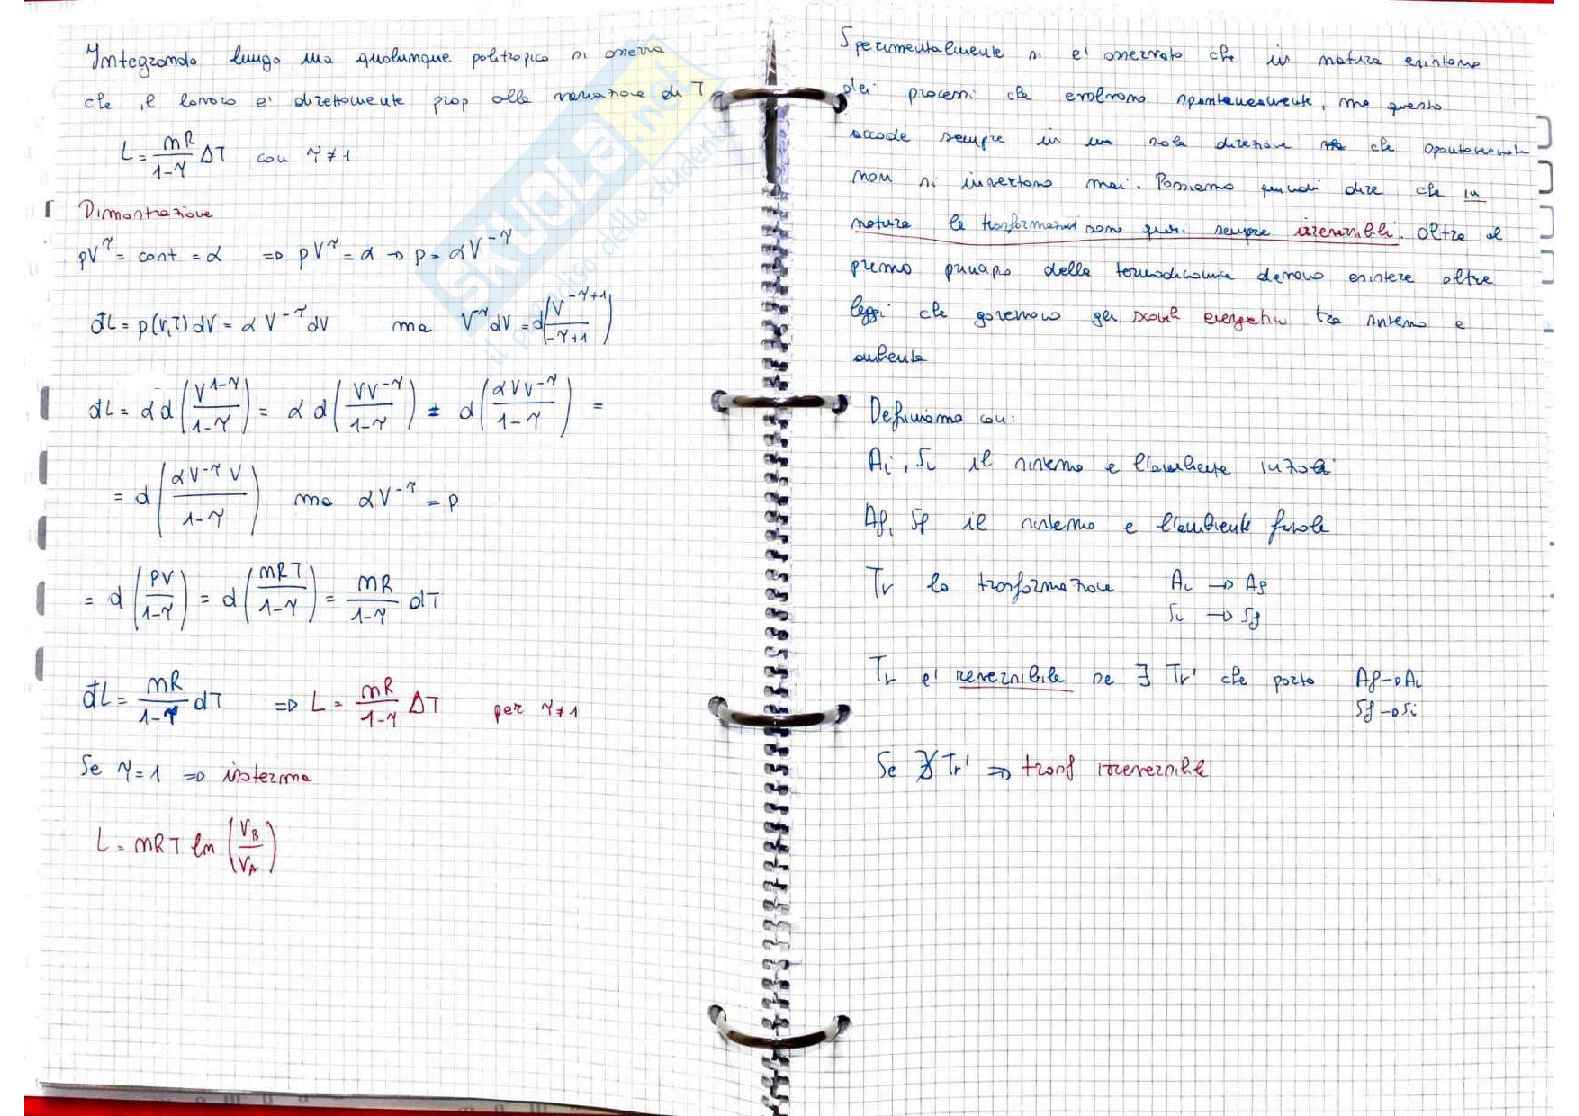 Integrando lungo una qualunque politropica si osserva
che il lavoro e' direttamente prop alla variazione di T
L = mR/(1-γ) ΔT con γ≠1
Dimostrazione
pV^γ = cost = α => pV^γ = α → p = αV^-γ
đL = p(V,T)dV = αV^-γ dV ma V^-γ dV = d(V^(-γ+1)/(-γ+1))
đL = α d(V^(1-γ)/(1-γ)) = α d(VV^-γ/(1-γ)) = d(αVV^-γ/(1-γ)) =
= d(αV^-γ V/(1-γ)) ma αV^-γ = p
= d(pV/(1-γ)) = d(mRT/(1-γ)) = mR/(1-γ) dT
đL = mR/(1-γ) dT => L = mR/(1-γ) ΔT per γ≠1
Se γ=1 => isoterma
L = mRT ln(V_B/V_A)
Sperimentalmente si e' osservato che in natura esistono
dei processi che evolvono spontaneamente, ma questo
accade sempre in una sola direzione che spontaneamente
non si invertono mai. Possiamo quindi dire che in
natura le trasformazioni sono quasi sempre irreversibili. Oltre al
primo principio della termodinamica devono esistere altre
leggi che governano gli scambi energetici tra sistema e
ambiente
Definiamo con:
Ai, Si il sistema e l'ambiente iniziali
Af, Sf il sistema e l'ambiente finale
Tr la trasformazione Ai → Af
Si → Sf
Tr e' reversibile se ∃ Tr' che porta Af → Ai
Sf → Si
Se ∄ Tr' => trasf irreversibile
SKUOLA.net
il paradiso dello studente